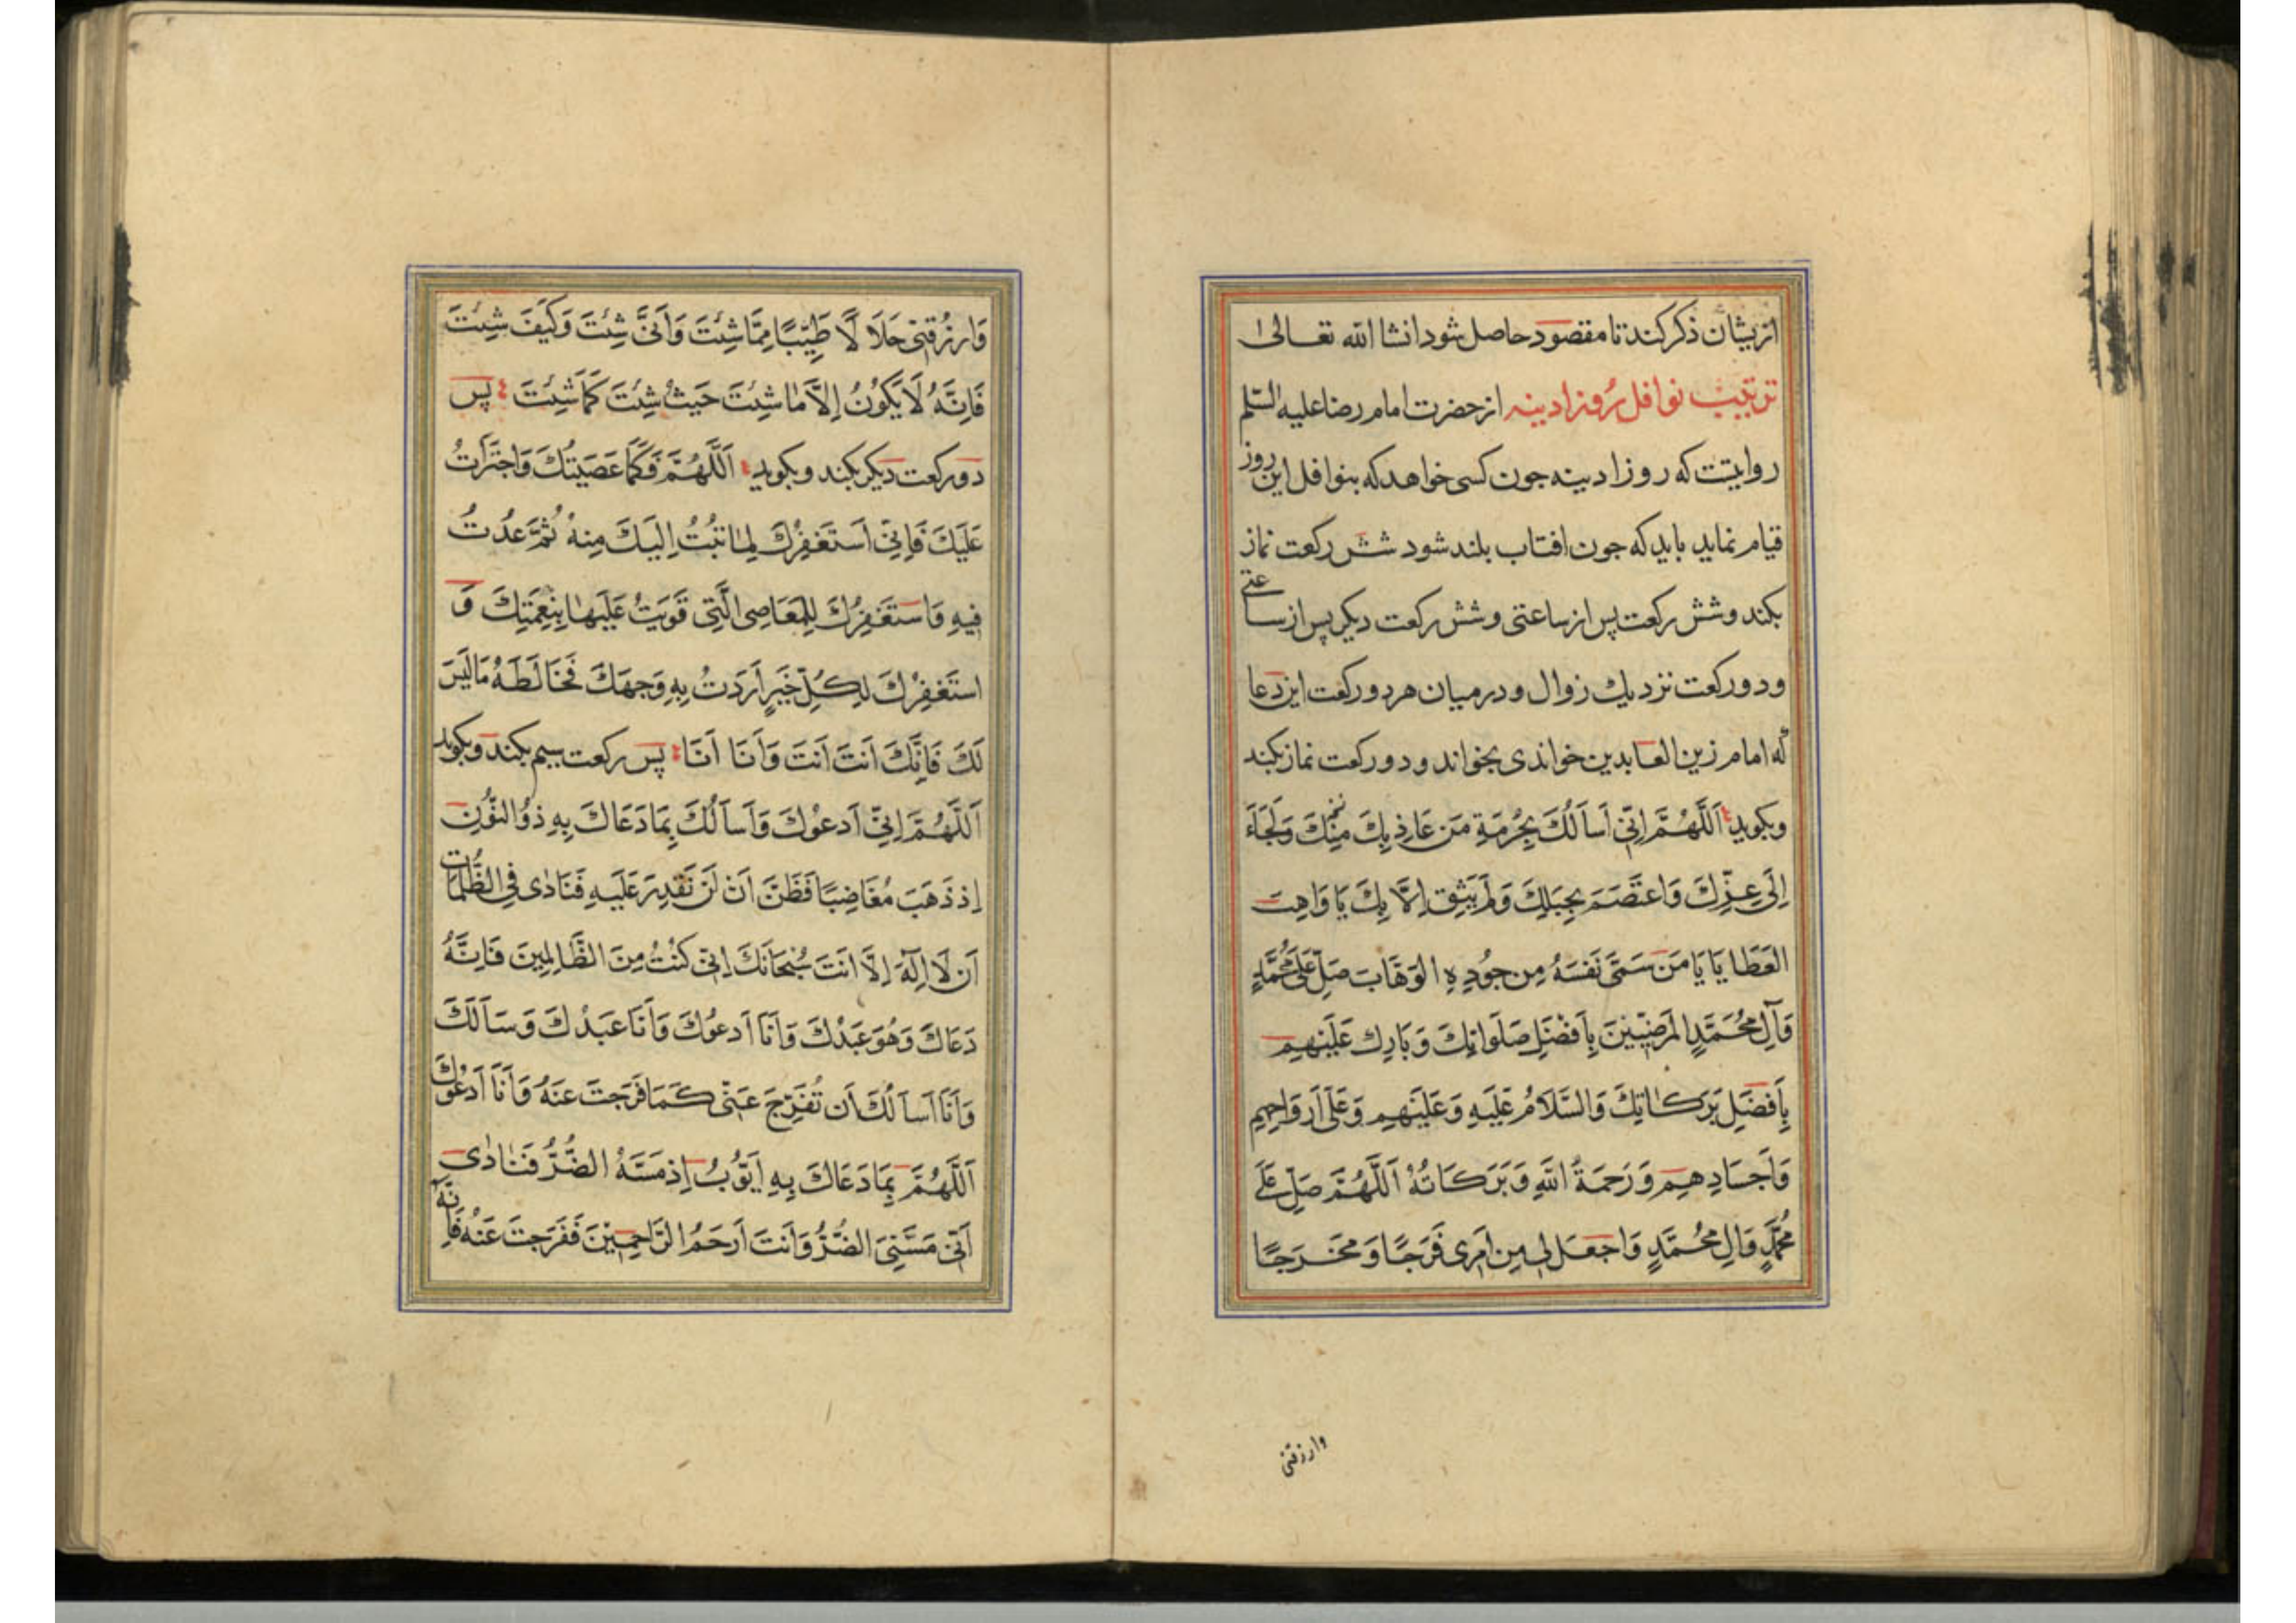 ازیشان ذکر کند تا مقصود حاصل شود انشا الله تعالی
ترتیب نوافل روز ادینه از حضرت امام رضا علیه السلم
روایتست که روز ادینه جون کسی خواهد که بنوافل این روز
قیام نماید باید که جون افتاب بلند شود شش رکعت نماز
بکند و شش رکعت پس از ساعتی و شش رکعت دیکر پس از ساعتی
و دو رکعت نزدیك زوال و در میان هر دو رکعت این دعا
که امام زین العابدین خواندی بخواند و دو رکعت نماز بکند
وبکوید اَللّٰهُمَّ اِنّی اَسأَلُكَ بِحُرمَةِ مَن عَاذَ بِكَ مِنكَ وَلَجَاَءَ
اِلَى عِزِّكَ وَاعتَصَمَ بِحَبلِكَ وَلَم یَثِق اِلَّا بِكَ یَا وَاهِبَ
العَطَایَا یَا مَن سَمّیَ نَفسَهُ مِن جُودِهِ الوَهَّابَ صَلِّ عَلَی مُحَمَّدٍ
وَآلِ مُحَمَّدٍ المَرضِیّینَ بِاَفضَلِ صَلَوَاتِكَ وَبَارِك عَلَیهِم
بِاَفضَلِ بَرَكَاتِكَ وَالسَّلَامُ عَلَیهِ وَعَلَیهِم وَعَلَی اَروَاحِهِم
وَاَجسَادِهِم وَرَحمَةُ اللّٰهِ وَبَرَكَاتُهُ اَللّٰهُمَّ صَلِّ عَلَی
مُحَمَّدٍ وَالِ مُحَمَّدٍ وَاجعَل لی مِن اَمرِی فَرَجًا وَمَخرَجًا
وارزقنی
وَارزُقنِی حَلَالًا طَیِّبًا مِمَّا شِئتَ وَاَنَّی شِئتَ وَكَیفَ شِئتَ
فَاِنَّهُ لَا یَكُونُ اِلَّا مَا شِئتَ حَیثُ شِئتَ كَمَا شِئتَ پس
دو رکعت دیکر بکند و بکوید اَللّٰهُمَّ فَكَمَا عَصَیتُكَ وَاجتَرَأتُ
عَلَیكَ فَاِنّی اَستَغفِرُكَ لِمَا تُبتُ اِلَیكَ مِنهُ ثُمَّ عُدتُ
فِیهِ وَاَستَغفِرُكَ لِلمَعَاصِی الَّتِی قَوِیتُ عَلَیهَا بِنِعمَتِكَ وَ
استَغفِرُكَ لِكُلِّ خَیرٍ اَرَدتُ بِهِ وَجهَكَ فَخَالَطَهُ مَا لَیسَ
لَكَ فَاِنَّكَ اَنتَ اَنتَ وَاَنَا اَنَا پس رکعت سیم بکند و بکوید
اَللّٰهُمَّ اِنّی اَدعُوكَ وَاَسأَلُكَ بِمَا دَعَاكَ بِهِ ذُو النُّونِ
اِذ ذَهَبَ مُغَاضِبًا فَظَنَّ اَن لَن نَقدِرَ عَلَیهِ فَنَادٰی فِی الظُّلُمَاتِ
اَن لَا اِلٰهَ اِلَّا اَنتَ سُبحَانَكَ اِنّی كُنتُ مِنَ الظَّالِمِینَ فَاِنَّهُ
دَعَاكَ وَهُوَ عَبدُكَ وَاَنَا اَدعُوكَ وَاَنَا عَبدُكَ وَسَاَلَكَ
وَاَنَا اَسأَلُكَ اَن تُفَرِّجَ عَنّی كَمَا فَرَجتَ عَنهُ وَاَنَا اَدعُوكَ
اَللّٰهُمَّ بِمَا دَعَاكَ بِهِ اَیُّوبُ اِذ مَسَّهُ الضُّرُّ فَنَادٰی
اَنّی مَسَّنِیَ الضُّرُّ وَاَنتَ اَرحَمُ الرَّاحِمِینَ فَفَرَجتَ عَنهُ فَاِنَّهُ